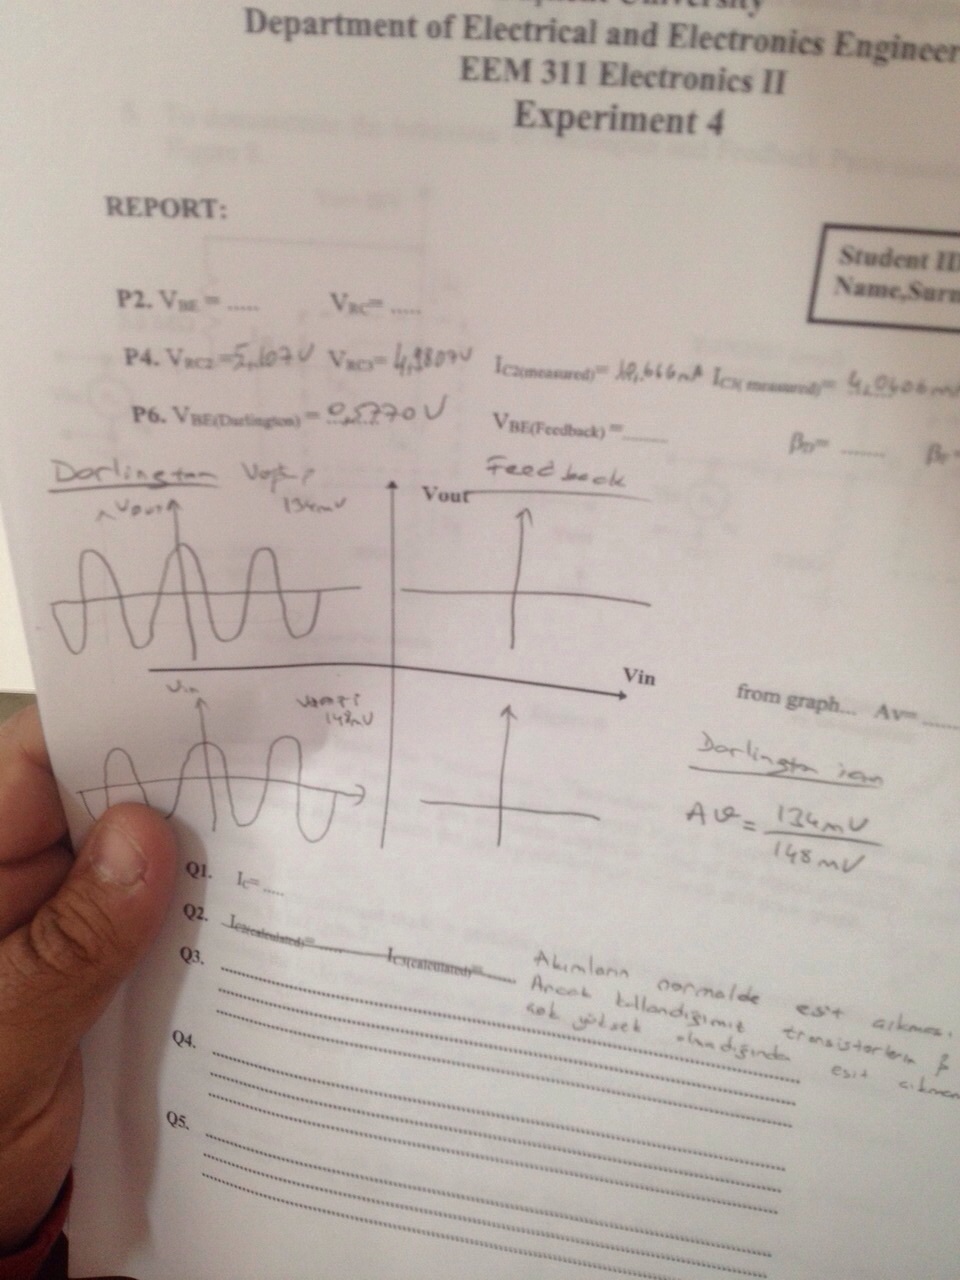 University
Department of Electrical and Electronics Engineer
EEM 311 Electronics II
Experiment 4
REPORT:
Student ID
Name,Surn
P2. VBE = ..... VRC= .....
P4. VRC2 =5,107V VRC3= 4,9807V IC2(measured)= 10,666mA IC3( measured)= 4,0606m
P6. VBE(Darlington) = 0,5770V VBE(Feedback) =....... βD= ....... 
Darlington
134mV
Vout
Feedback
Vout
Vin
Vin
148mV
from graph... Av=
Darlington icin
Av = 134mV
148mV
Q1. IC= .....
Q2. IC2(calculated)= ..... IC3(calculated)= .....
Q3.
Akımların normalde eşit çıkması
Ancak kullandığımız transistorlerin β
çok yüksek olmadığında eşit
Q4.
Q5.